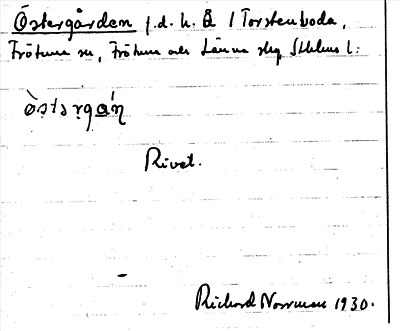 Östergården f.d. h. Å / Torstenboda,
Frötuna sn, Frötuna och Länna skg Sthlms l:
Rivet.
Richard Norrman 1930.